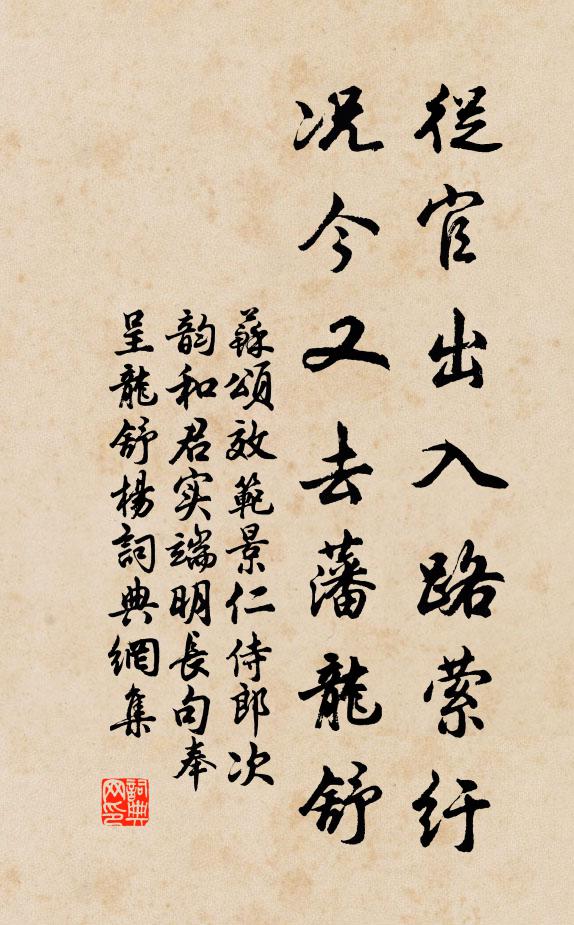 從官出入路縈紆
况今又去藩龍舒
蘇頌效範景仁侍郎次
韵和君实端明長句奉
呈龍舒楊詞典網集
詞典网印